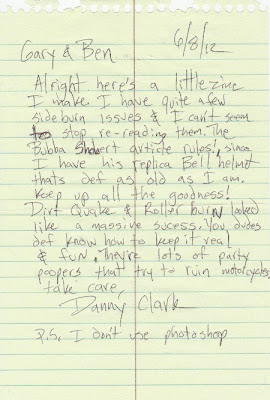 6/8/12
Gary & Ben
Alright here's a little zine
I make. I have quite a few
sideburn issues & I can't seem
to stop re-reading them. The
Bubba Shobert article rules!, since
I have his replica Bell helmet
thats def as old as I am.
Keep up all the goodness!
Dirt Quake & Rollerburn looked
like a massive sucess. You dudes
def know how to keep it real
& fun. They're lots of party
poopers that try to ruin motorcycles,
take care,
Danny Clark
P.S. I don't use photoshop